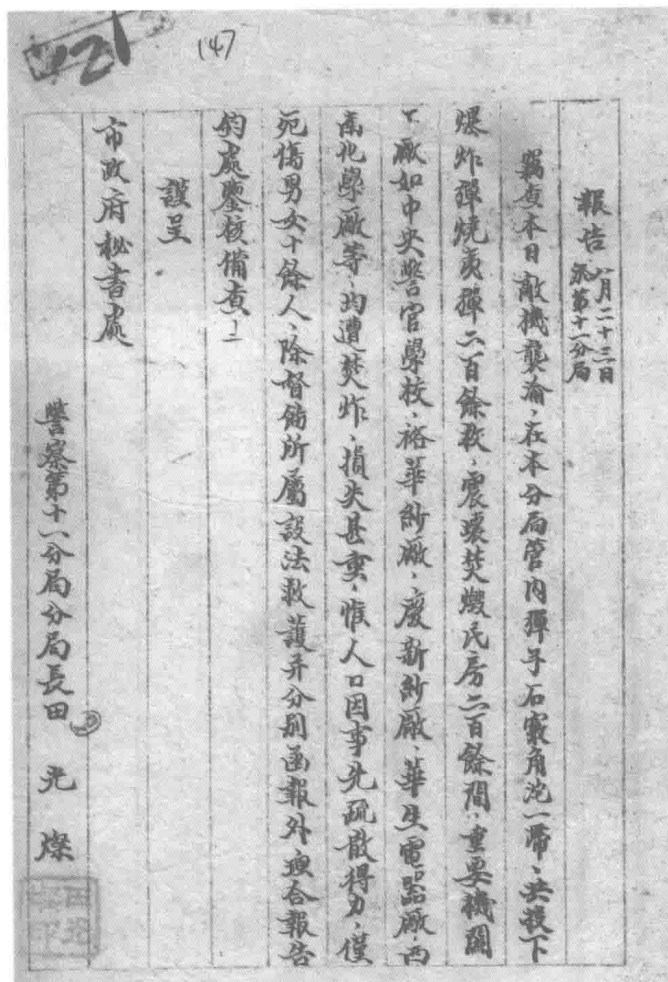 121
147
報告 八月二十三日
於第十一分局
竊查本日敵機襲渝、在本分局管內彈子石窍角沱一帶、共投下
爆炸彈燒夷彈二百餘枚、震壞焚燬民房二百餘間、重要機關
工廠如中央警官學校、裕華紗廠、慶新紗廠、華生電器廠、西
南化學廠等、均遭焚炸、損失甚重、惟人口因事先疏散得力、僅
死傷男女十餘人、除督飭所屬設法救護并分別函報外理合報告
鈞處鑒核備查!!
謹呈
市政府秘書處
警察第十一分局分局長田 光燦